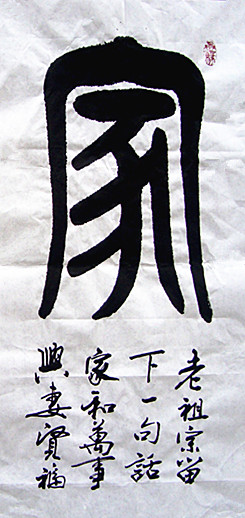 家
老祖宗留
下一句話
家和萬事
興妻賢福